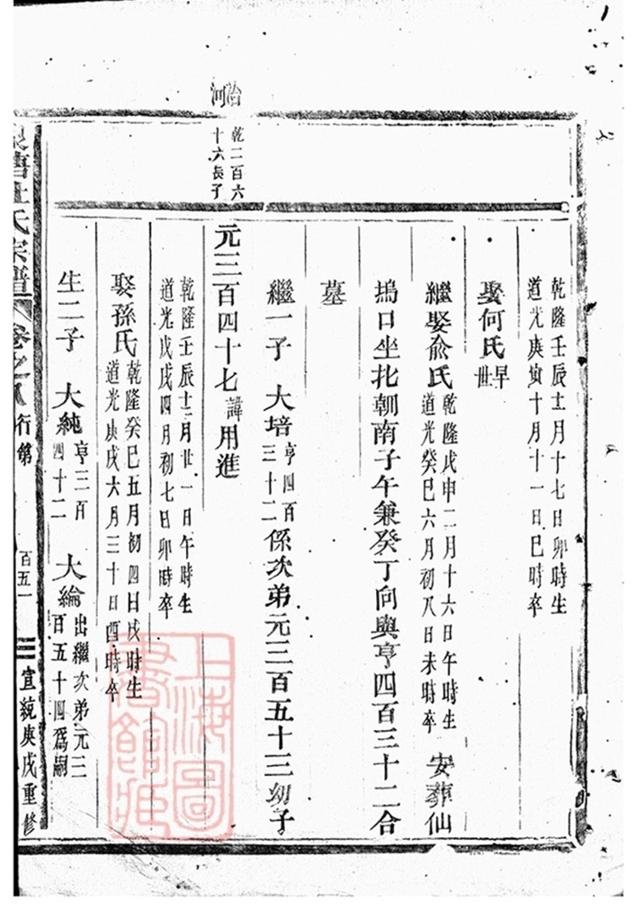 乾隆壬辰十二月十七日卯時生
道光庚寅十月十一日巳時卒
娶何氏早世
繼娶俞氏乾隆戊申二月十六日午時生
道光癸巳六月初八日未時卒
安葬仙
塢口坐北朝南子午兼癸丁向與亨四百三十二合
墓
繼一子 大培亨四百三十二係次弟元三百五十三幼子
乾二百六
十六長子
元三百四十七諱用進
乾隆壬辰十二月廿一日午時生
道光戊戌四月初七日卯時卒
娶孫氏乾隆癸巳五月初四日戌時生
道光庚戌六月三十日酉時卒
生二子 大純亨三百四十二
大綸出繼次弟元三百五十四爲嗣
唐杜氏宗譜 卷之八 行第
百五一
宣統庚戌重修
上海圖書館藏